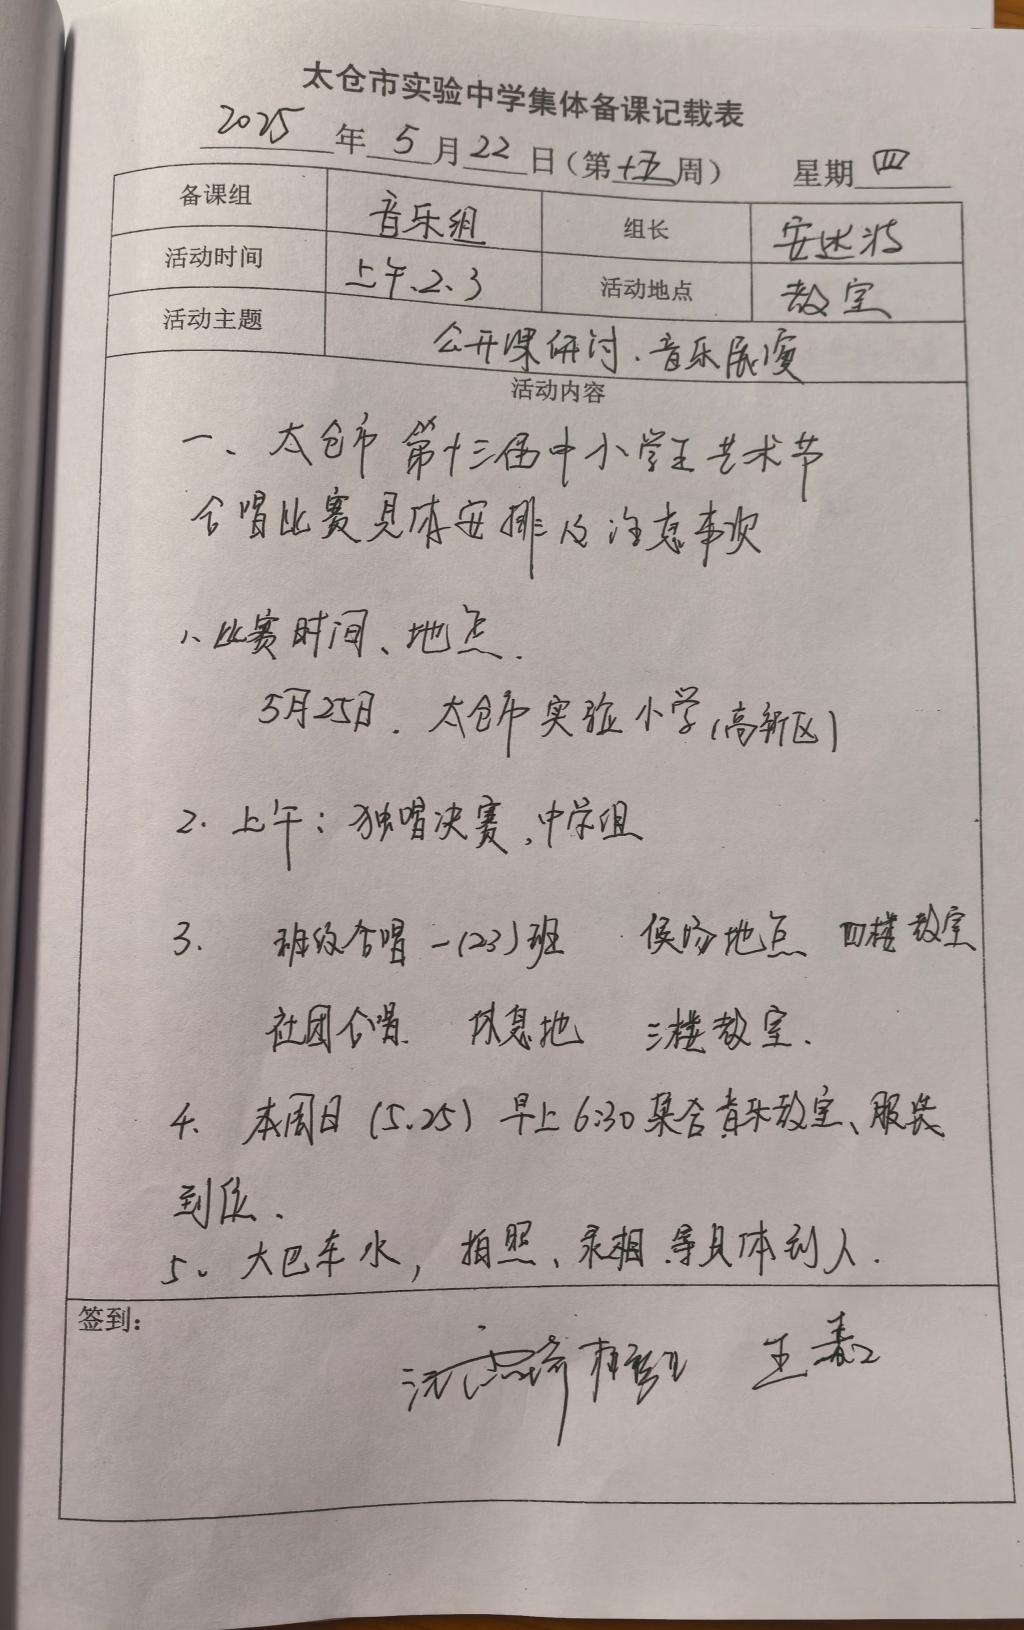 太仓市实验中学集体备课记载表
2025年5月22日（第十五周） 星期四
备课组 音乐组 组长 安达
活动时间 上午、2、3 活动地点 教室
活动主题 公开课研讨、音乐展演
活动内容
一、太仓市第十三届中小学生艺术节
合唱比赛具体安排及注意事次
1、比赛时间、地点.
5月25日. 太仓市实验小学(高新区)
2. 上午：独唱决赛、中学组
3. 班级合唱 一(23)班 候场地点 四楼教室
社团合唱 休息地 三楼教室.
4. 本周日(5.25) 早上6:30集合音乐教室、服装
到位、
5。大巴车水，拍照、录相.等具体到人.
签到：
王